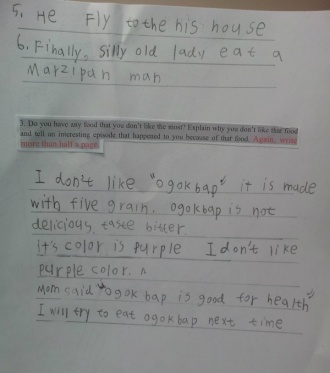 5. He Fly to the his house
6. Finally, silly old lady eat a
Marzipan man
3. Do you have any food that you don't like the most? Explain why you don't like that food
and tell an interesting episode that happened to you because of that food. Again, write
more than half a page.
I don't like "ogokbap" it is made
with five grain. ogokbap is not
delicious, taste bitter
It's color is purple I don't like
purple color.
Mom said "ogok bap is good for health"
I will try to eat ogokbap next time